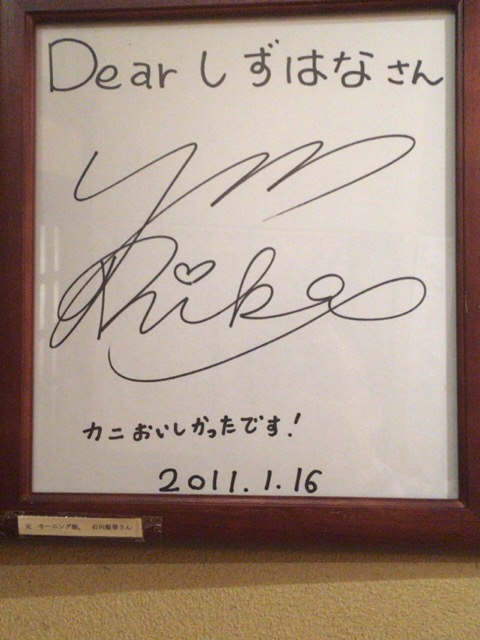 Dear しずはなさん
Rika
カニおいしかったです!
2011.1.16
元 モーニング娘。 石川梨華さん